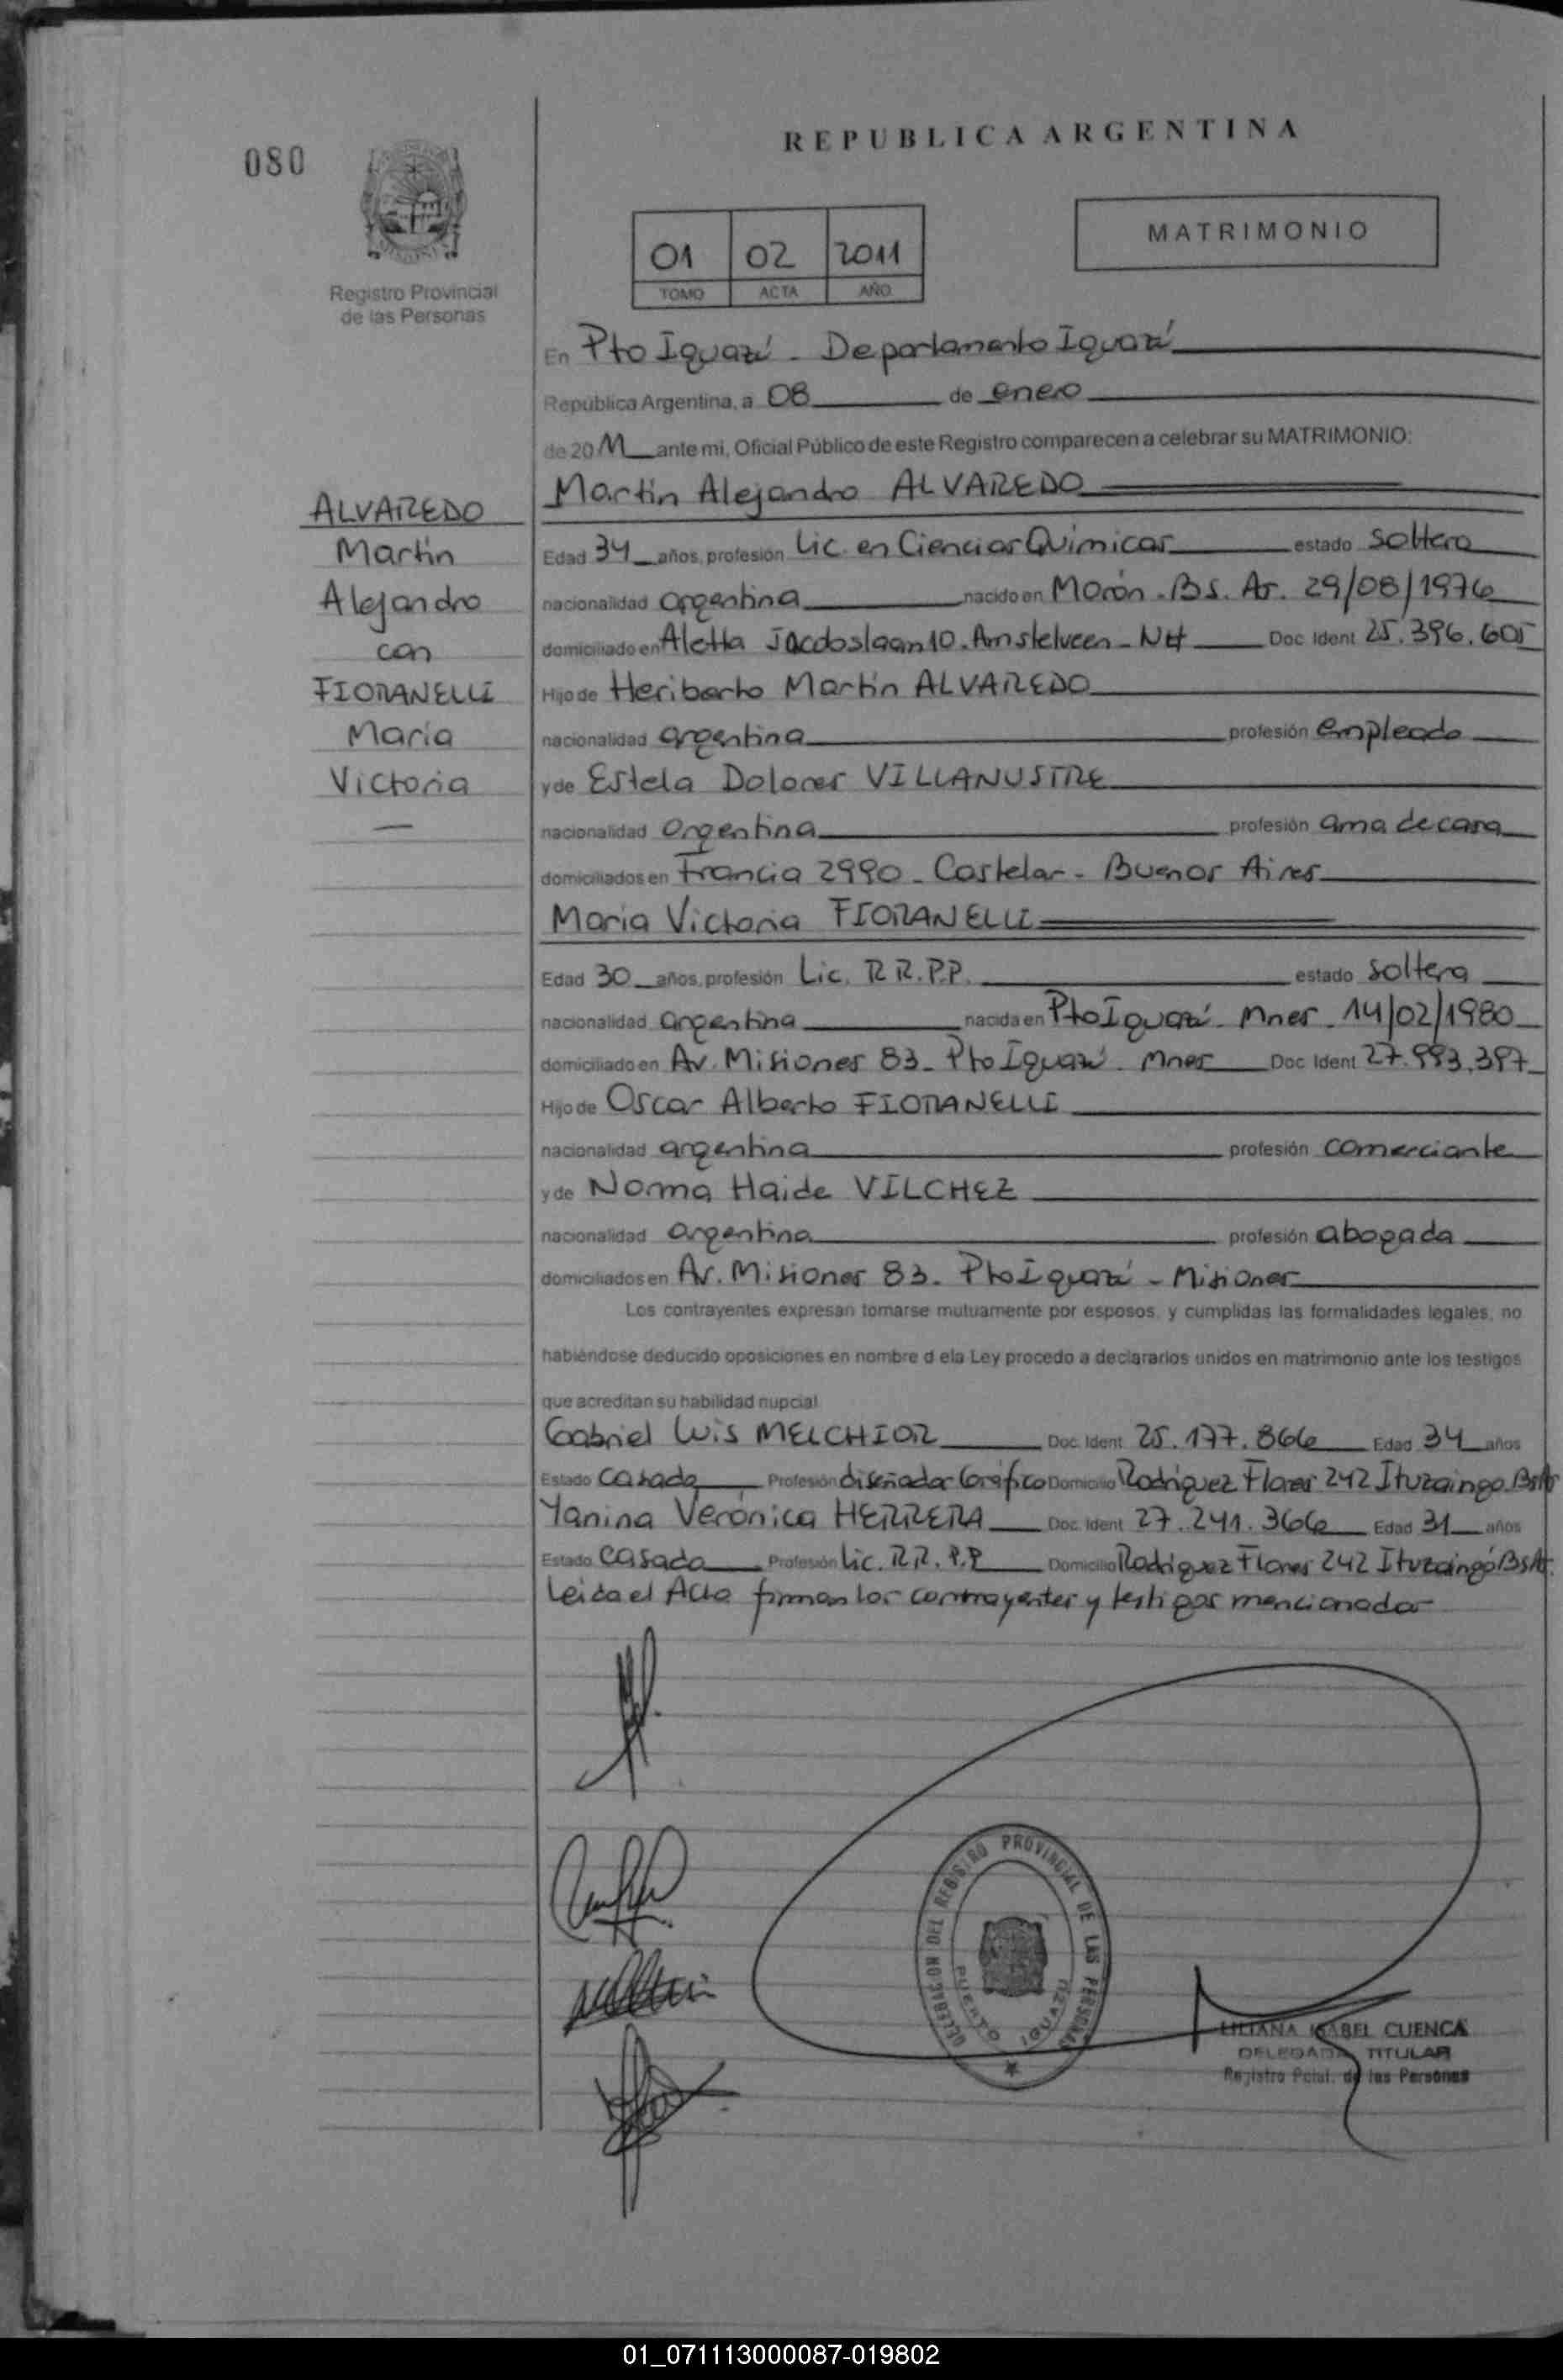 080
REPUBLICA ARGENTINA
MATRIMONIO
01 02 2011
TOMO ACTA AÑO
Registro Provincial
de las Personas
En Pto Iguazú - Departamento Iguazú
República Argentina, a 08 de enero
de 2011 ante mi, Oficial Público de este Registro comparecen a celebrar su MATRIMONIO:
Martín Alejandro ALVAREDO
ALVAREDO
Martín
Alejandro
con
FIORANELLI
María
Victoria
Edad 34 años, profesión Lic. en Ciencias Químicas estado soltero
nacionalidad argentina nacido en Morón - Bs. As. 29/08/1976
domiciliado en Aletta Jacobslaan 10. Amstelveen - NH Doc. Ident. 25.396.605
Hijo de Heriberto Martín ALVAREDO
nacionalidad argentina profesión empleado
y de Estela Dolores VILLANUSTRE
nacionalidad argentina profesión ama de casa
domiciliados en Francia 2990 - Castelar - Buenos Aires
María Victoria FIORANELLI
Edad 30 años, profesión Lic. R R. P.P. estado soltera
nacionalidad argentina nacida en Pto Iguazú - Mnes - 14/02/1980
domiciliado en Av. Misiones 83 - Pto Iguazú - Mnes Doc. Ident. 27.993.397
Hijo de Oscar Alberto FIORANELLI
nacionalidad argentina profesión comerciante
y de Norma Haide VILCHEZ
nacionalidad argentina profesión abogada
domiciliados en Av. Misiones 83 - Pto Iguazú - Misiones
Los contrayentes expresan tomarse mutuamente por esposos, y cumplidas las formalidades legales, no
habiéndose deducido oposiciones en nombre d ela Ley procedo a declararlos unidos en matrimonio ante los testigos
que acreditan su habilidad nupcial
Gabriel Luis MELCHIOR Doc. Ident. 25.177.866 Edad 34 años
Estado casado Profesión diseñador Gráfico Domicilio Rodríguez Flores 242 Ituzaingo. BsAs
Yanina Verónica HERRERA Doc. Ident. 27.241.366 Edad 31 años
Estado casada Profesión Lic. R R. P.P Domicilio Rodríguez Flores 242 Ituzaingó BsAs.
Leída el Acta firman los contrayentes y testigos mencionados
DELEGACION DEL REGISTRO PROVINCIAL DE LAS PERSONAS
PUERTO IGUAZU
LILIANA ISABEL CUENCA
DELEGADA TITULAR
Registro Pcial. de las Personas
01_071113000087-019802